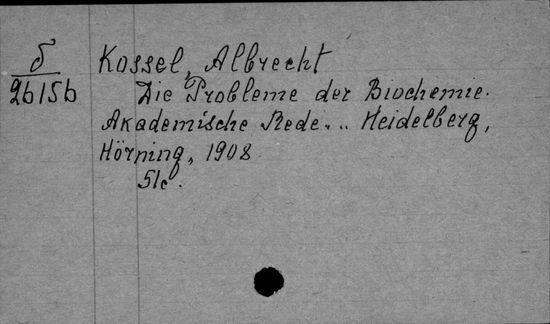 δ Kossel, Albrecht
26156 Die Probleme der Biochemie.
Akademische Rede... Heidelberg,
Hörning, 1908
51c.